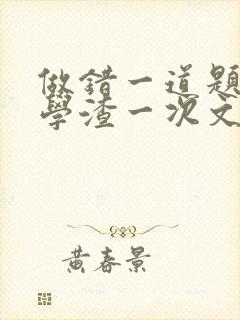 做錯一道題
學渣一次文
黄春景